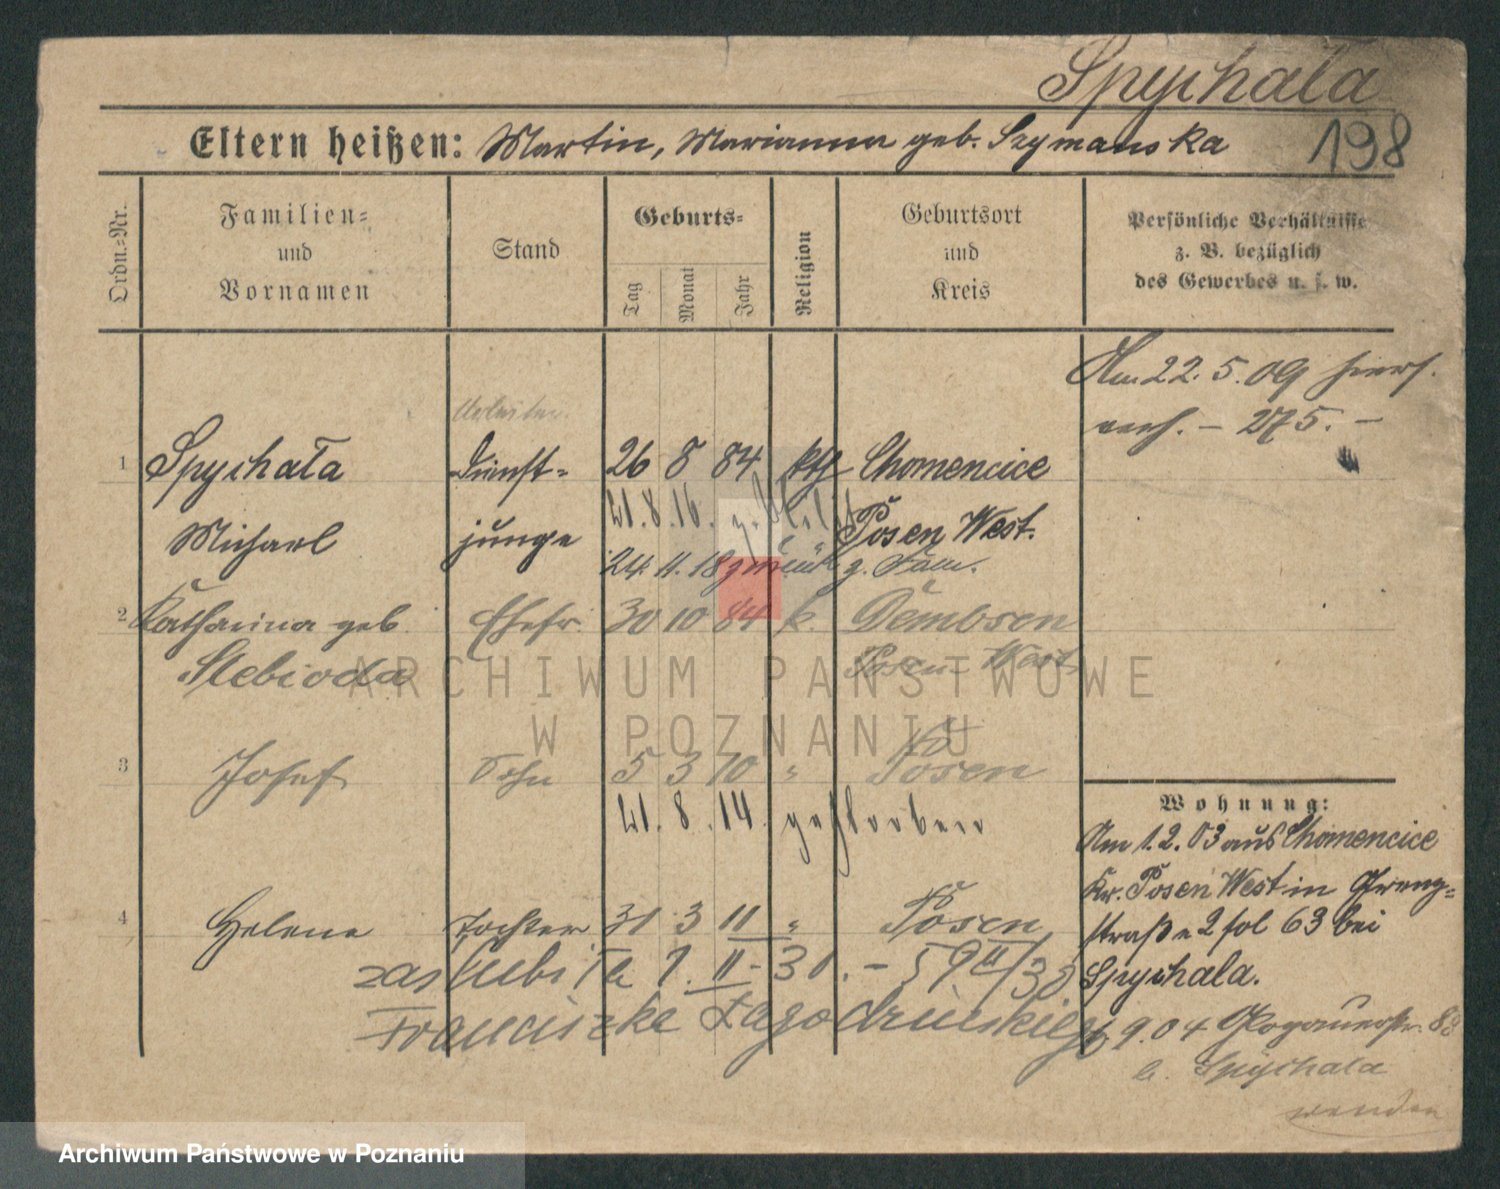 Spychała
198
Eltern heißen: Martin, Marianna geb. Szymanska
Ordn.-Nr.
Familien- und Vornamen
Stand
Geburts-
Tag Monat Jahr
Religion
Geburtsort und Kreis
Persönliche Verhältnisse z. B. bezüglich des Gewerbes u. s. w.
Am 22. 5. 09
verh. – 275. –
1 Spychała Dienst- 26 8 84 kth Chomencice
21. 8. 16.
Michael junge Posen West.
24. 11. 18 zurück z. Fam.
2 Katharina geb. Ehefr. 30 10 84 k. Dembsen
Slebioda Posen West
ARCHIWUM PAŃSTWOWE
W POZNANIU
3 Josef Sohn 5 3 10 " Posen
21. 8. 14. gestorben
4 Helene Tochter 31 3 11 " Posen
zaślubiła 1. II - 30. –
Franciszka
Wohnung:
Am 1. 2. 03 aus Chomencice
Kr. Posen West in
straße 2 fol 63 bei
Spychala.
9. 04 Glogauerstr. 88
b. Spychala
wenden
Archiwum Państwowe w Poznaniu